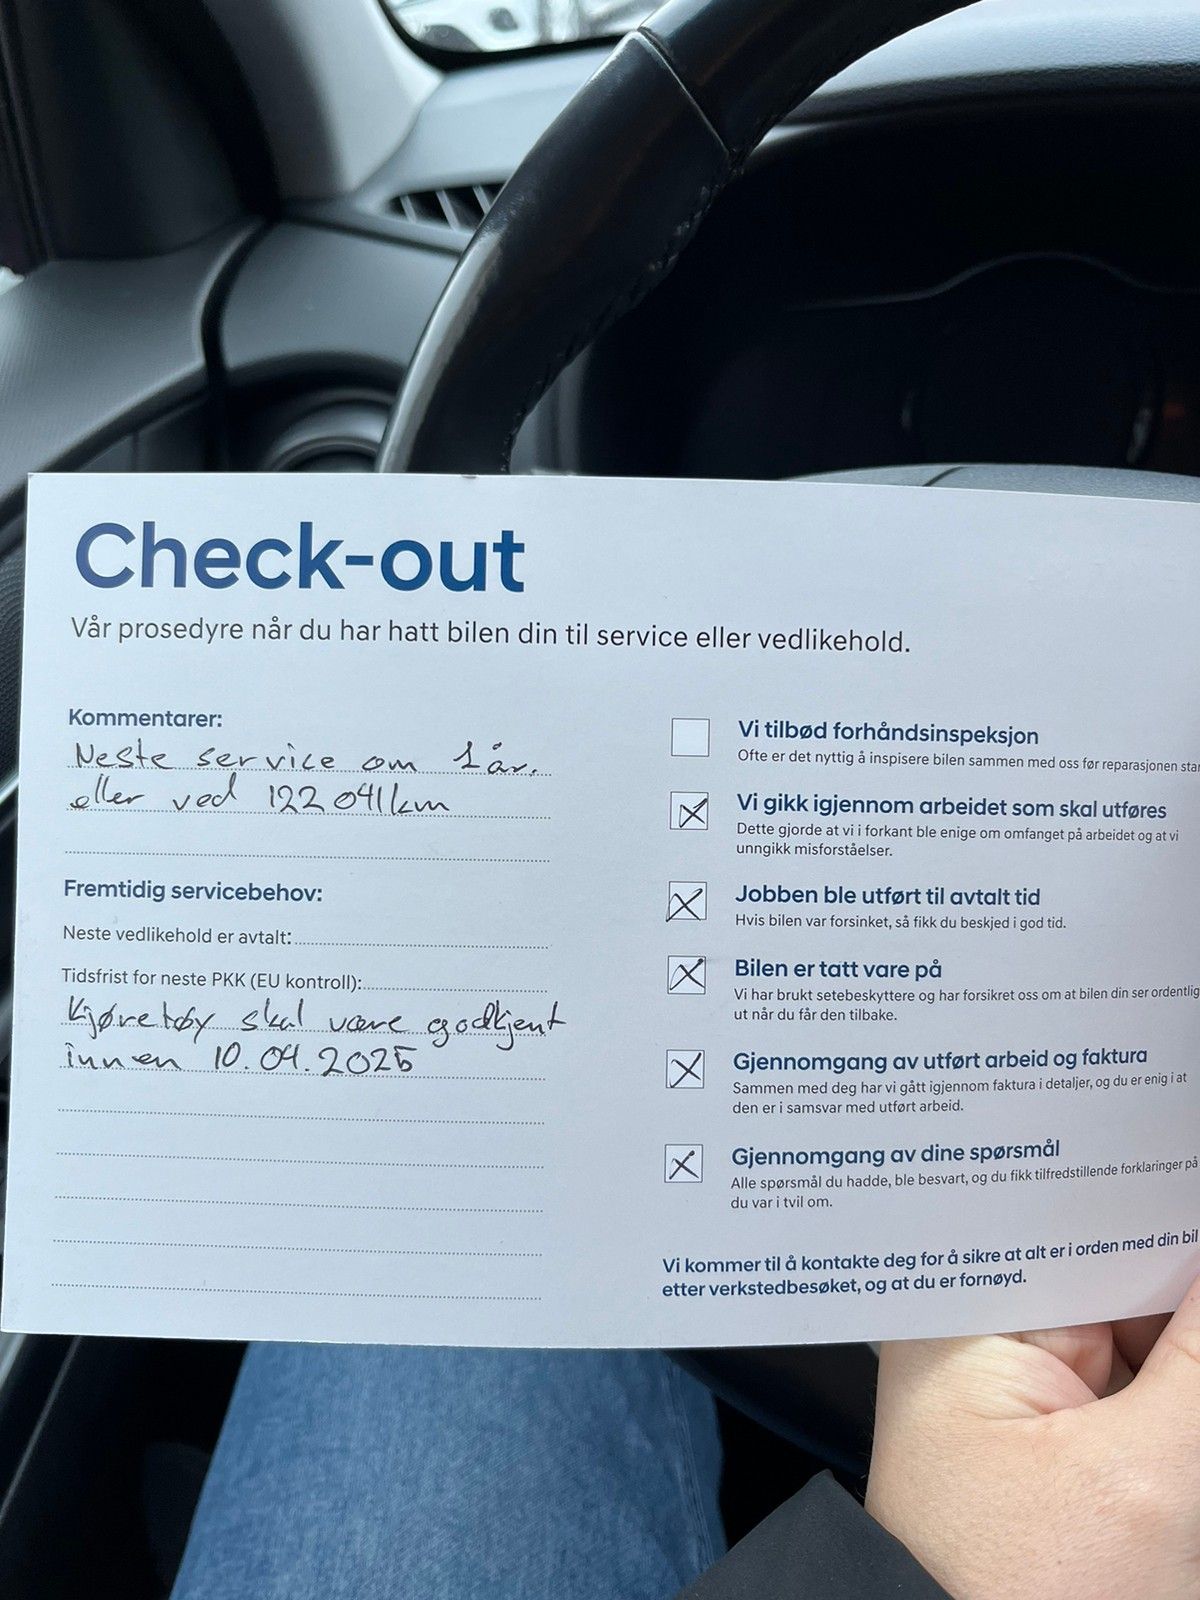 Check-out
Vår prosedyre når du har hatt bilen din til service eller vedlikehold.
Kommentarer:
Neste service om 1 år.
eller ved 122 041 km
Fremtidig servicebehov:
Neste vedlikehold er avtalt:
Tidsfrist for neste PKK (EU kontroll):
Kjøretøy skal være godkjent
innen 10.04.2025
Vi tilbød forhåndsinspeksjon
Ofte er det nyttig å inspisere bilen sammen med oss før reparasjonen star
Vi gikk igjennom arbeidet som skal utføres
Dette gjorde at vi i forkant ble enige om omfanget på arbeidet og at vi
unngikk misforståelser.
Jobben ble utført til avtalt tid
Hvis bilen var forsinket, så fikk du beskjed i god tid.
Bilen er tatt vare på
Vi har brukt setebeskyttere og har forsikret oss om at bilen din ser ordentlig
ut når du får den tilbake.
Gjennomgang av utført arbeid og faktura
Sammen med deg har vi gått igjennom faktura i detaljer, og du er enig i at
den er i samsvar med utført arbeid.
Gjennomgang av dine spørsmål
Alle spørsmål du hadde, ble besvart, og du fikk tilfredstillende forklaringer på
du var i tvil om.
Vi kommer til å kontakte deg for å sikre at alt er i orden med din bil
etter verkstedbesøket, og at du er fornøyd.